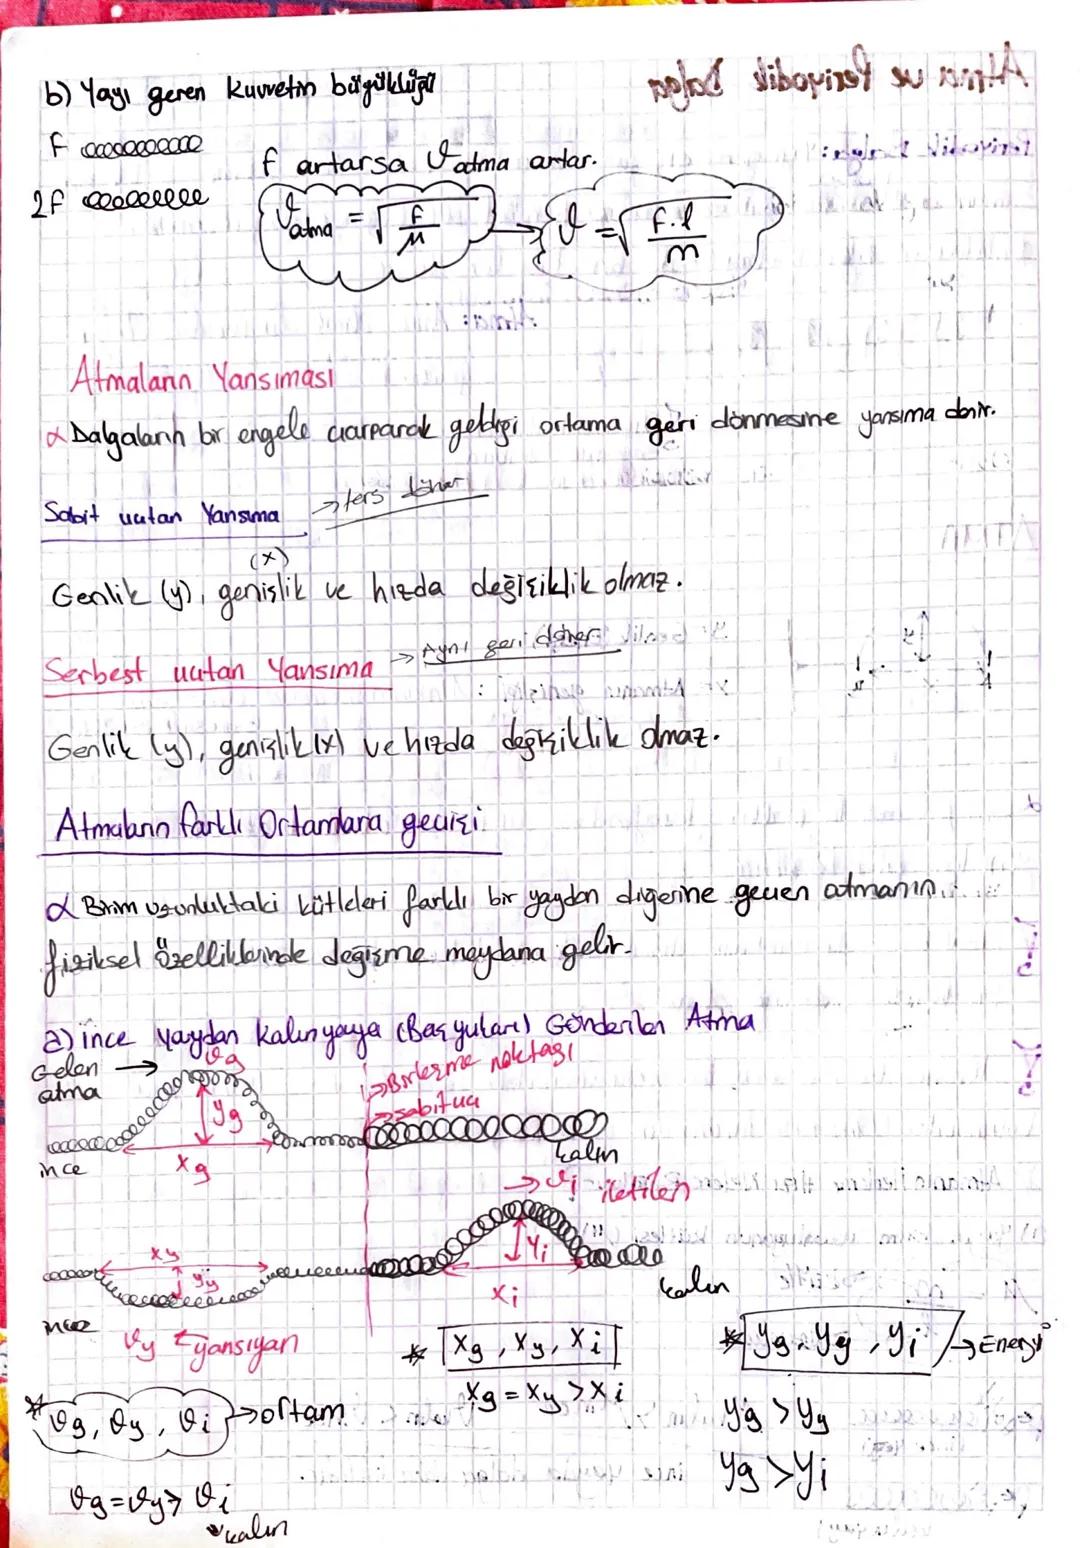 b) Yayı geren kuvvetin büyüklüğü
F
2F
F artarsa ϑatma artar.
ϑatma = √(F/μ) → ϑ = √(F.l/m)
Atmaların Yansıması
α Dalgaların bir engele çarparak geldiği ortama geri dönmesine yansıma denir.
Sabit uçtan Yansıma → ters döner
(x)
Genlik (y), genişlik ve hızda değişiklik olmaz.
Serbest uçtan Yansıma → Aynı geri döner
Genlik (y), genişlik (x) ve hızda değişiklik olmaz.
Atmaların farklı Ortamlara geçişi
α Birim uzunluktaki kütleleri farklı bir yaydan diğerine geçen atmanın
fiziksel özelliklerinde değişme meydana gelir.
a) ince yaydan kalın yaya (Baş yukarı) Gönderilen Atma
Gelen →
atma
ϑg
yg
xg
ince
→ Birleşme noktası
→ sabit uç
kalın
→ ϑi iletilen
yi
xi
kalın
xy
yy
ince
ϑy ← yansıyan
* xg, xy, xi
xg = xy > xi
* yg, yy, yi → Enerji
yg > yy
yg > yi
* ϑg, ϑy, ϑi → ortam
ϑg = ϑy > ϑi
kalın